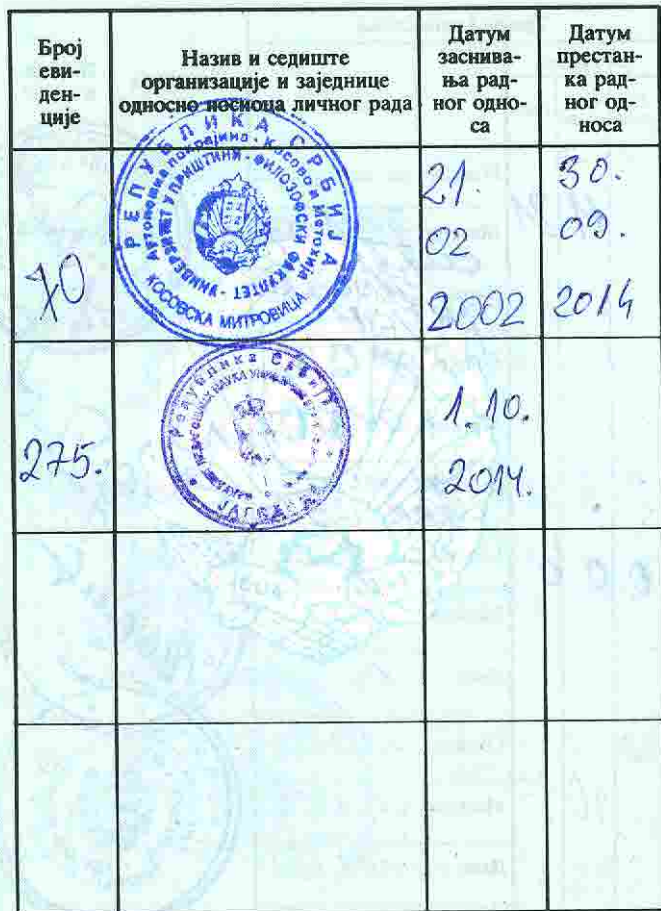 Број
еви-
ден-
ције
Назив и седиште
организације и заједнице
односно носиоца личног рада
Датум
заснива-
ња рад-
ног одно-
са
Датум
престан-
ка рад-
ног од-
носа
70
РЕПУБЛИКА СРБИЈА
Аутономна покрајина - Косово и Метохија
УНИВЕРЗИТЕТ У ПРИШТИНИ - ФИЛОЗОФСКИ ФАКУЛТЕТ
КОСОВСКА МИТРОВИЦА
21.
02
2002
30.
09.
2014
275.
Република Србија
ПЕДАГОШКИХ НАУКА
ЈАГОДИНА
1.10.
2014.